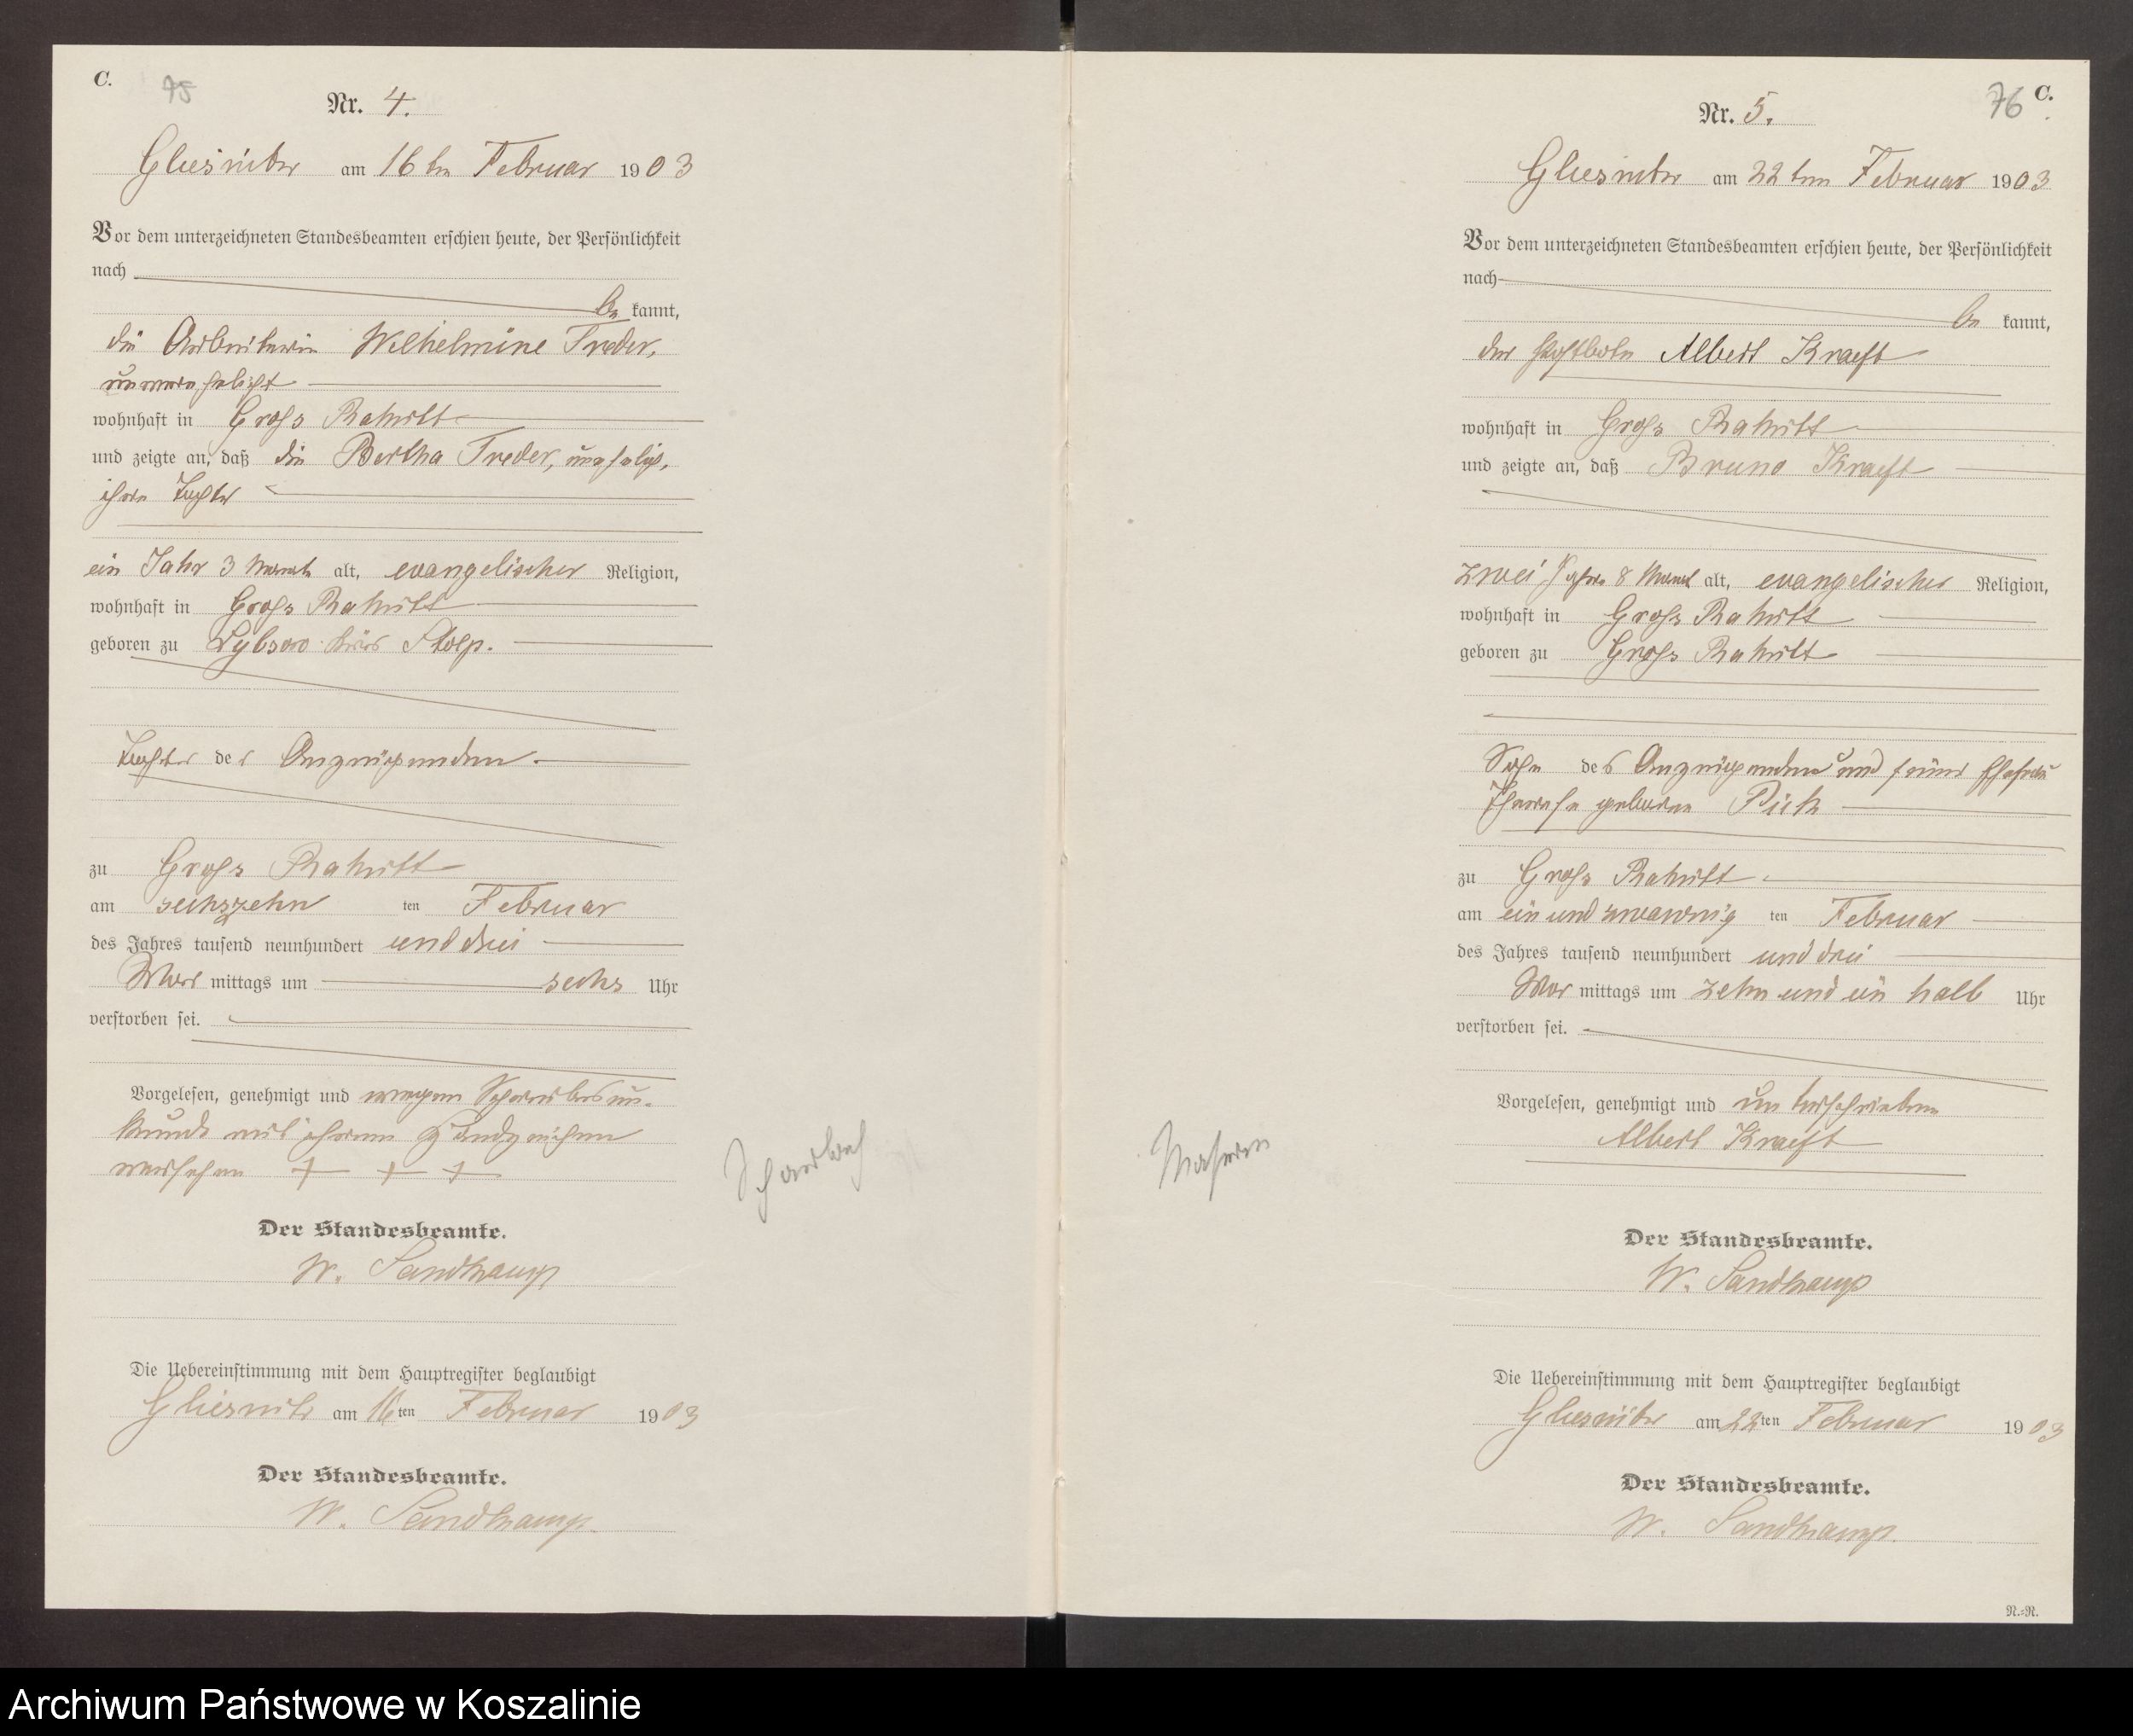 C.
75
Nr. 4.
Gliesnitz am 16ten Februar 1903
Vor dem unterzeichneten Standesbeamten erschien heute, der Persönlichkeit
nach
be kannt,
die Arbeiterin Wilhelmine Treder,
unverehelicht
wohnhaft in Groß Rakitt
und zeigte an, daß die Bertha Treder, unehelich,
ihre Tochter
ein Jahr 3 Monate alt, evangelischer Religion,
wohnhaft in Groß Rakitt
geboren zu Lybsow Kreis Stolp.
Tochter der Anzeigenden.
zu Groß Rakitt
am sechszehn ten Februar
des Jahres tausend neunhundert und drei
Vor mittags um sechs Uhr
verstorben sei.
Vorgelesen, genehmigt und wegen Schreibensun-
kunde mit ihrem Handzeichen
versehen + + +
Der Standesbeamte.
W. Sandkamp
Die Uebereinstimmung mit dem Hauptregister beglaubigt
Gliesnitz am 16ten Februar 1903
Der Standesbeamte.
W. Sandkamp.
Scharlach
Masern
76 C.
Nr. 5.
Gliesnitz am 22ten Februar 1903
Vor dem unterzeichneten Standesbeamten erschien heute, der Persönlichkeit
nach
be kannt,
der Postbote Albert Kraeft
wohnhaft in Groß Rakitt
und zeigte an, daß Bruno Kraeft
zwei Jahre 8 Monat alt, evangelischer Religion,
wohnhaft in Groß Rakitt
geboren zu Groß Rakitt
Sohn des Anzeigenden und seiner Ehefrau
Therese geborene Pick
zu Groß Rakitt
am ein und zwanzig ten Februar
des Jahres tausend neunhundert und drei
Vor mittags um zehn und ein halb Uhr
verstorben sei.
Vorgelesen, genehmigt und unterschrieben
Albert Kraeft
Der Standesbeamte.
W. Sandkamp
Die Uebereinstimmung mit dem Hauptregister beglaubigt
Gliesnitz am 22ten Februar 1903
Der Standesbeamte.
W. Sandkamp.
N.-N.
Archiwum Państwowe w Koszalinie